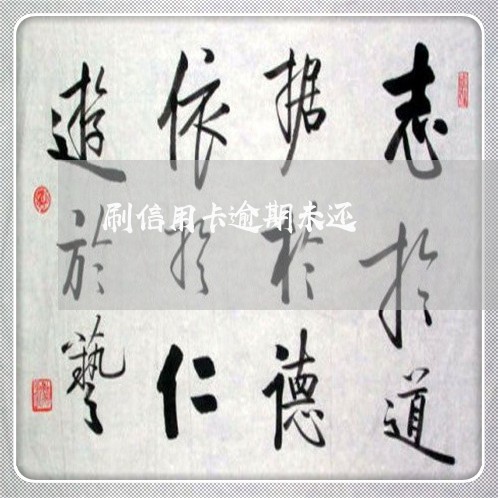 志於道
据於德
依於仁
遊於藝
刷信用卡逾期未还